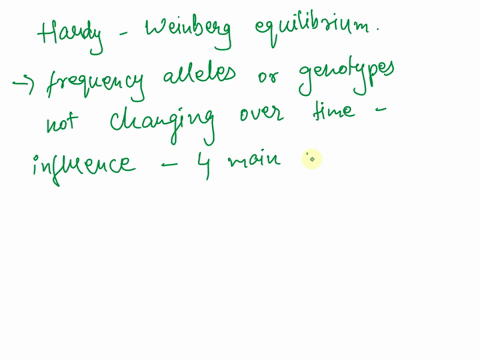 Hardy - Weinberg equilibrium.
→ frequency alleles or genotypes
not changing over time -
influence - 4 main